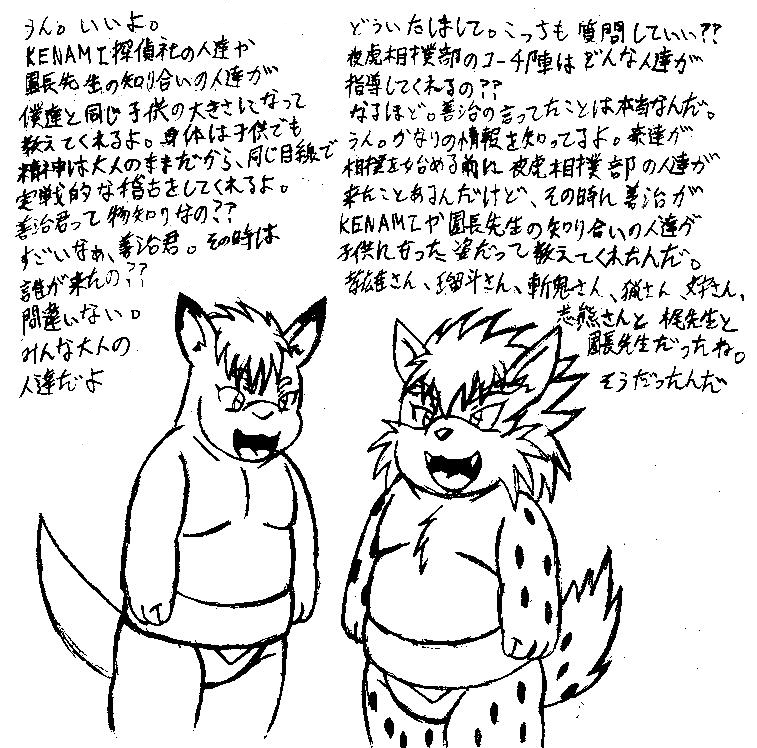 うん。いいよ。
KENAMI探偵社の人達や
園長先生の知り合いの人達が
僕達と同じ子供の大きさになって
教えてくれるよ。身体は子供でも
精神は大人のままだから、同じ目線で
実戦的な稽古をしてくれるよ。
善治君って物知りなの??
すごいなぁ、善治君。その時は
誰が来たの??
間違いない。
みんな大人の
人達だよ
どういたしまして。こっちも質問していい??
夜虎相撲部のコーチ陣はどんな人達が
指導してくれるの??
なるほど。善治の言ってたことは本当なんだ。
うん。かなりの情報を知ってるよ。来達が
相撲を始める前に夜虎相撲部の人達が
来たことあるんだけど、その時に善治が
KENAMIや園長先生の知り合いの人達が
子供になった姿だって教えてくれたんだ。
さん、瑠斗さん、斬鬼さん、猟さん、さん、
志熊さんと梶先生と
園長先生だったね。
そうだったんだ